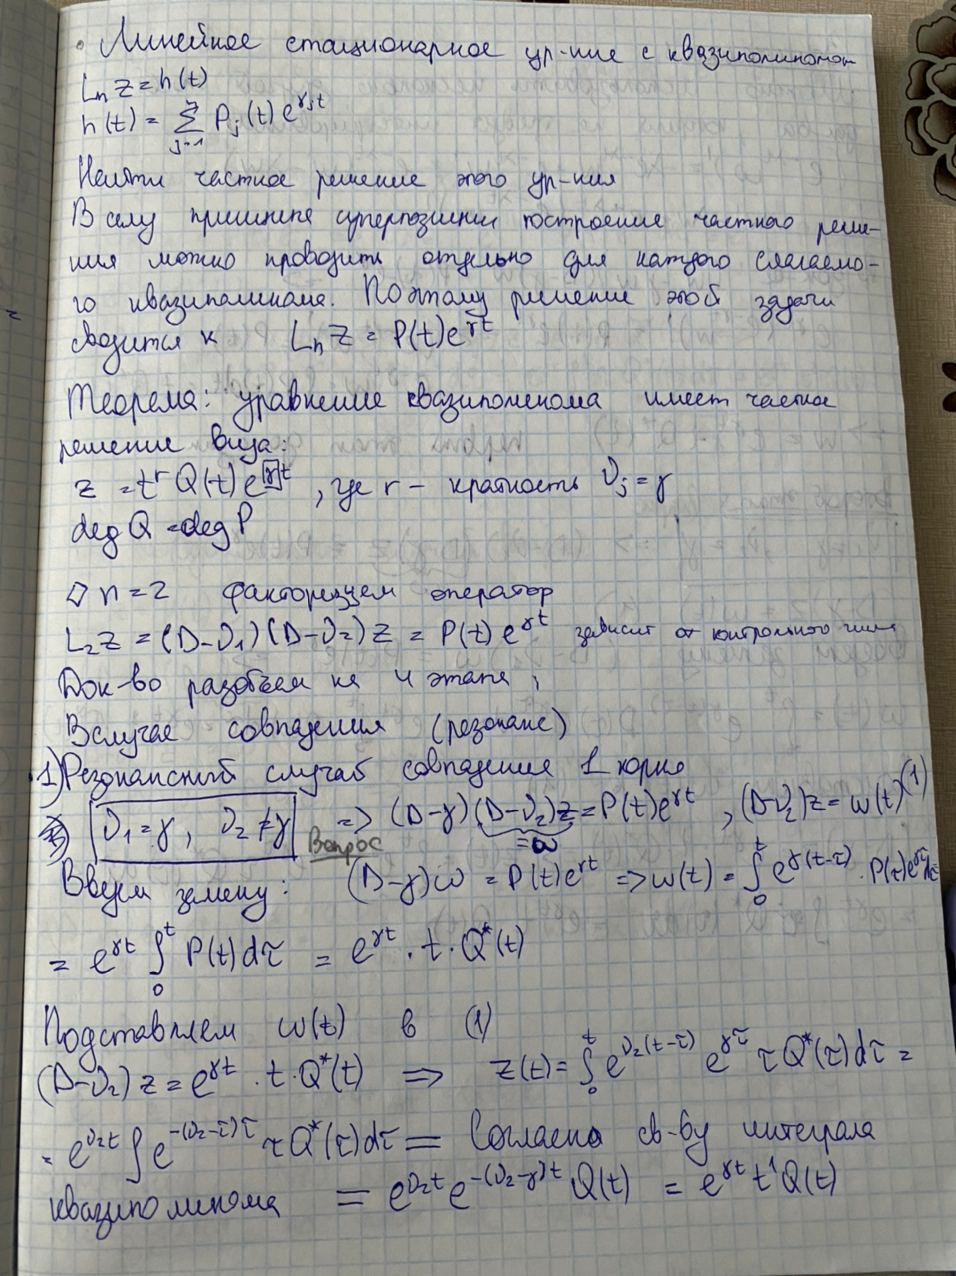 • Линейное стационарное ур-ние с квазиполиномом
Lₙ z = h(t)
h(t) = Σ_{j=1} P_j(t) e^{γ_j t}
Найти частное решение этого ур-ния
В силу принципа суперпозиции построение частного реше-
ния можно проводить отдельно для каждого слагаемо-
го квазиполинома. Поэтому решение этой задачи
сводится к Lₙ z = P(t)e^{γt}
Теорема: уравнение квазиполинома имеет частное
решение вида:
z = t^r Q(t) e^{γt}, где r – кратность ν_j = γ
deg Q = deg P
n = 2 факторизуем оператор
L₂z = (D-ν₁)(D-ν₂)z = P(t) e^{γt} зависит от контрольного числа
Док-во разобьем на 4 этапа
В случае совпадения (резонанс)
1) Резонансный случай совпадения 1 корня
ν₁ = γ, ν₂ ≠ γ => (D-γ)(D-ν₂)z = P(t)e^{γt}, (D-ν₂)z = w(t) (1)
= ω
Вопрос
Введем замену: (D-γ)ω = P(t)e^{γt} => w(t) = ∫₀^t e^{γ(t-τ)} · P(τ)e^{γτ}dτ
= e^{γt} ∫₀^t P(τ)dτ = e^{γt} · t · Q*(t)
Подставляем w(t) в (1)
(D-ν₂)z = e^{γt} · t · Q*(t) => z(t) = ∫₀^t e^{ν₂(t-τ)} e^{γτ} τQ*(τ)dτ =
= e^{ν₂t} ∫ e^{-(ν₂-τ)τ} τQ*(τ)dτ = Согласно св-ву интеграла
квазиполинома = e^{ν₂t} e^{-(ν₂-γ)t} Q(t) = e^{γt} t¹Q(t)